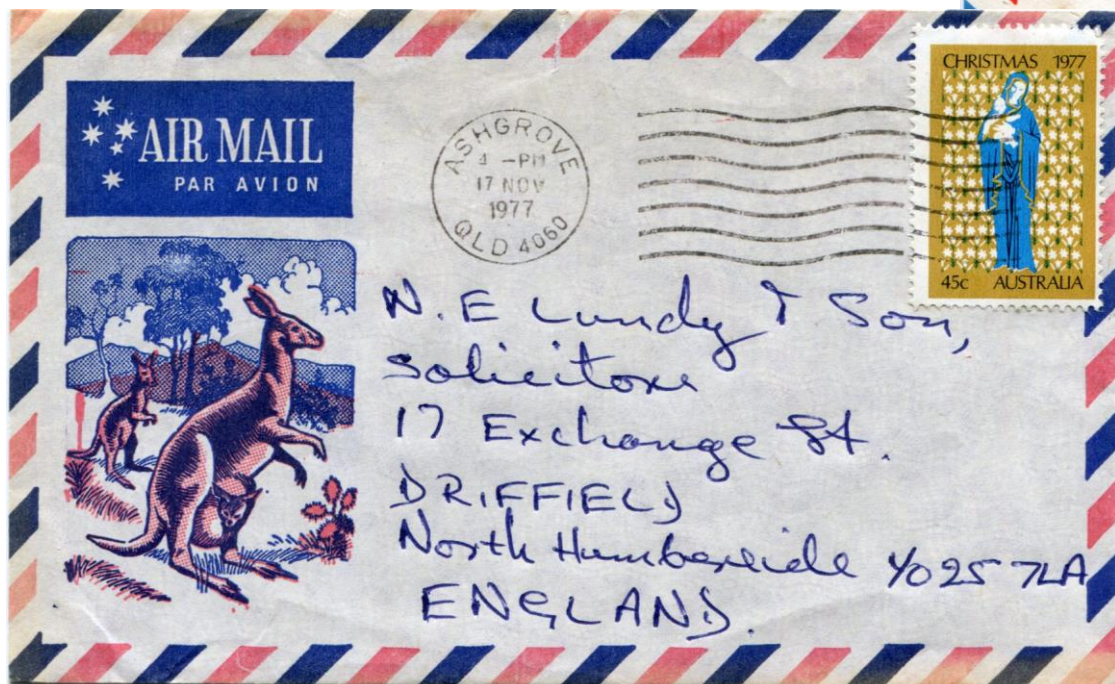 AIR MAIL
PAR AVION
ASHGROVE
4 -PM
17 NOV
1977
QLD 4060
CHRISTMAS 1977
45c AUSTRALIA
N. E Lundy & Son,
Solicitors
17 Exchange St.
DRIFFIELD
North Humberside YO25 7LA
ENGLAND.